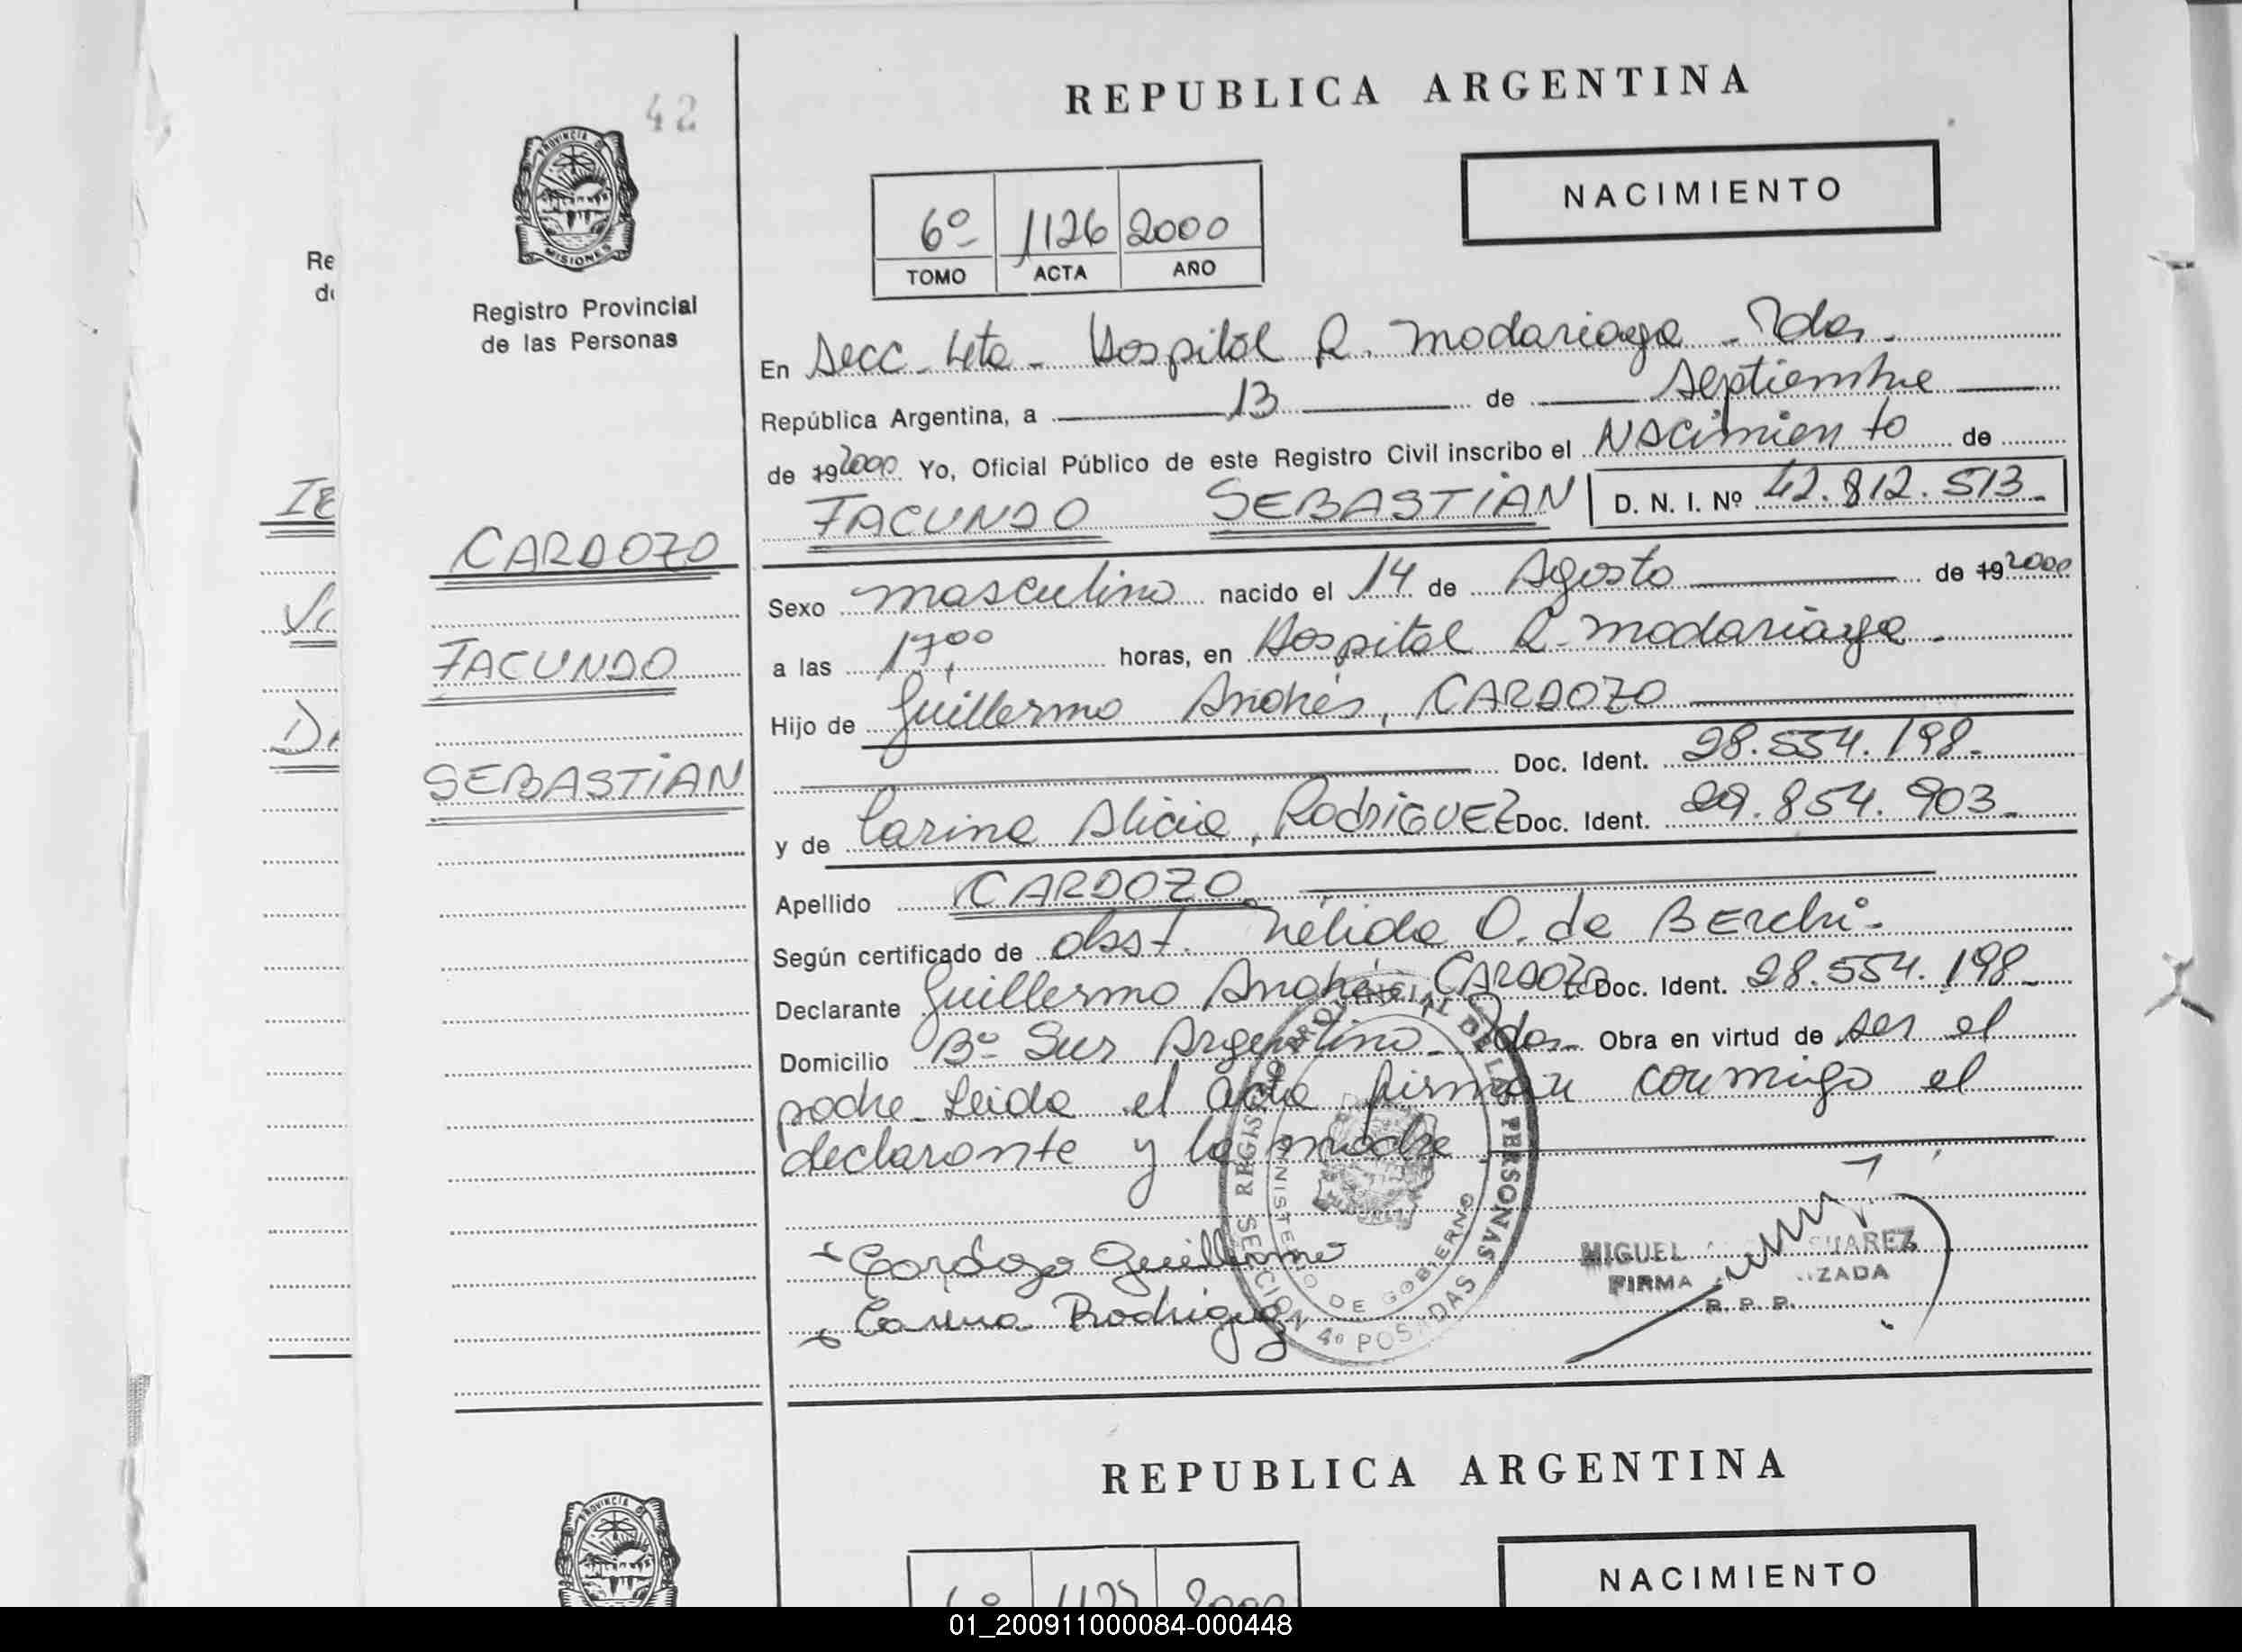 42
REPUBLICA ARGENTINA
PROVINCIA DE
MISIONES
Registro Provincial
de las Personas
NACIMIENTO
6º 1126 2000
TOMO ACTA AÑO
Re
de
En Secc. 4ta - Hospital R. Madariaga - Pdas.
República Argentina, a 13 de Septiembre
de 192000 Yo, Oficial Público de este Registro Civil inscribo el Nacimiento de
FACUNDO SEBASTIAN D. N. I. Nº 42.812.513.
CARDOZO
FACUNDO
SEBASTIAN
Sexo masculino nacido el 14 de Agosto de 192000
a las 17,00 horas, en Hospital R. Madariaga.
Hijo de Guillermo Andrés, CARDOZO
Doc. Ident. 28.554.198.
y de Carina Alicia, RODRIGUEZ Doc. Ident. 29.854.903.
Apellido CARDOZO.
Según certificado de obst. Nélida O. de Berchi.
Declarante Guillermo Andrés, CARDOZO Doc. Ident. 28.554.198.
Domicilio Bº Sur Argentino - Pdas. Obra en virtud de ser el
padre. Leida el acta firman conmigo el
declarante y la madre.
REGISTRO PROVINCIAL DE LAS PERSONAS
MINISTERIO DE GOBIERNO
SECCION 4º POSADAS
Cardozo Guillermo
Carina Rodriguez
MIGUEL SUAREZ
FIRMA
R. P. P.
REPUBLICA ARGENTINA
PROVINCIA DE
NACIMIENTO
6º 1127 2000
01_200911000084-000448